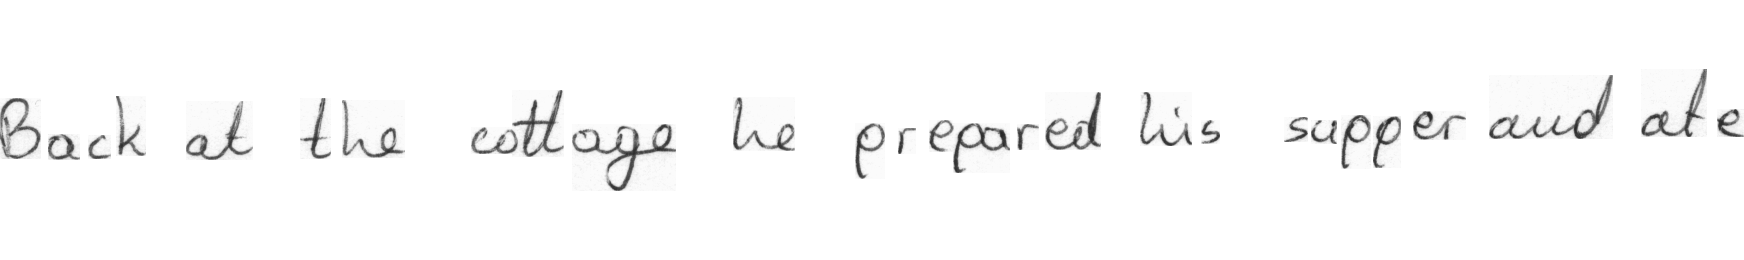 Back at the cottage he prepared his supper and ate